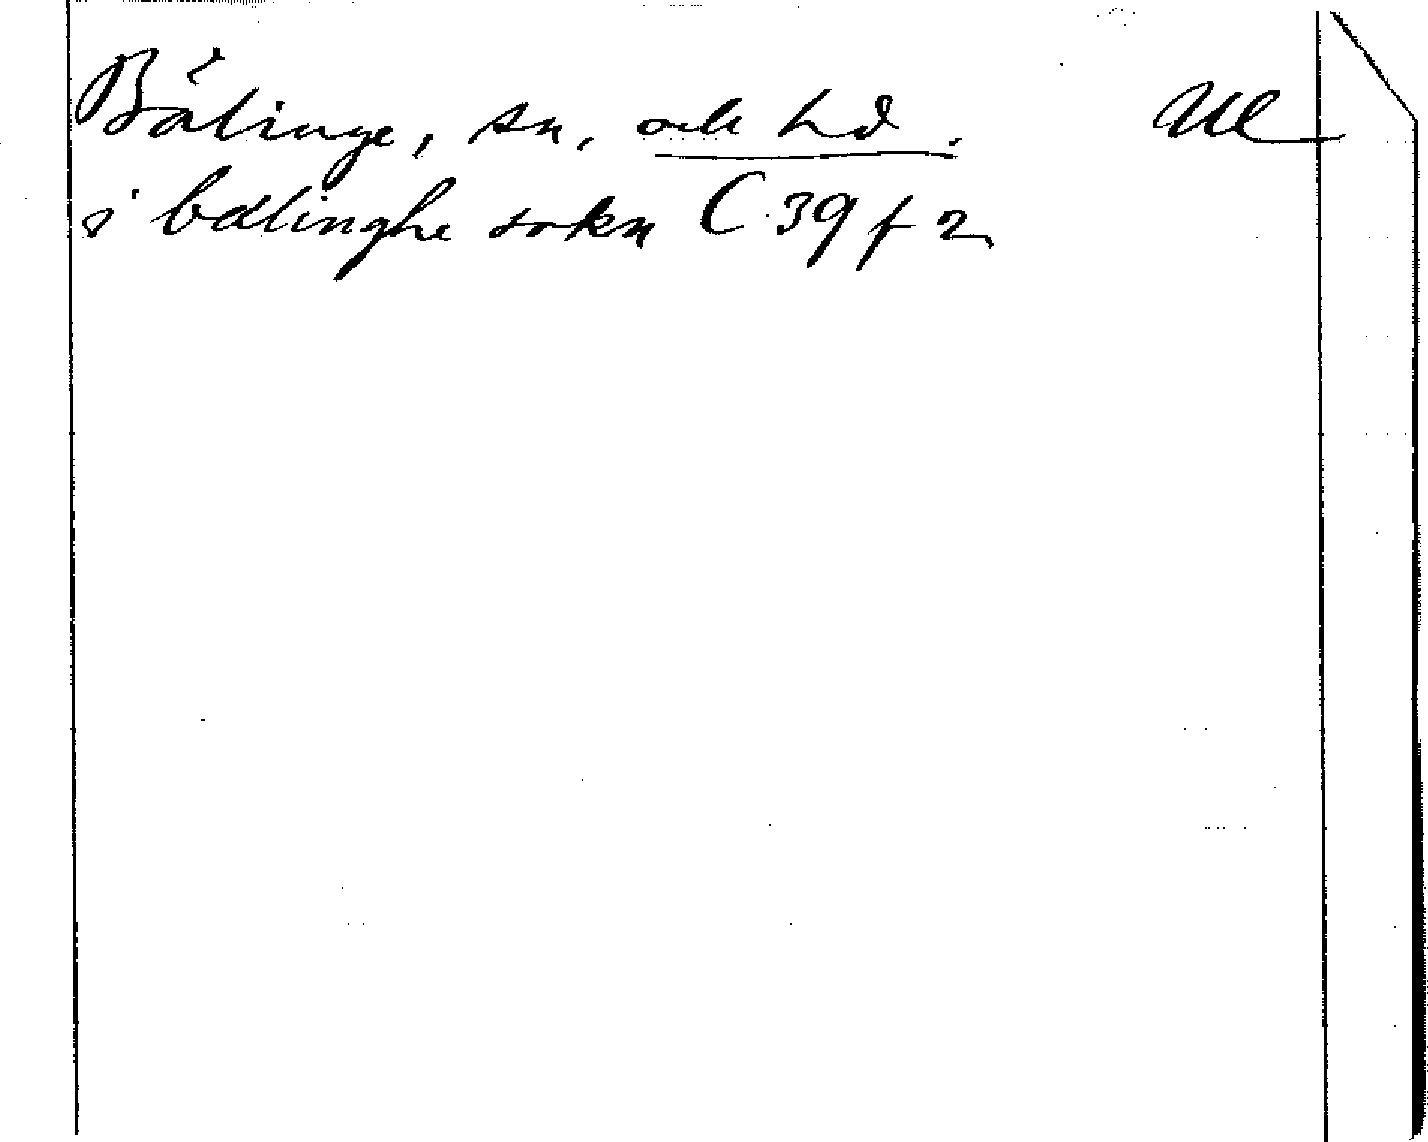 Bälinge, sn. och hd. Ul
i bælinghe sokn C 39 f 2